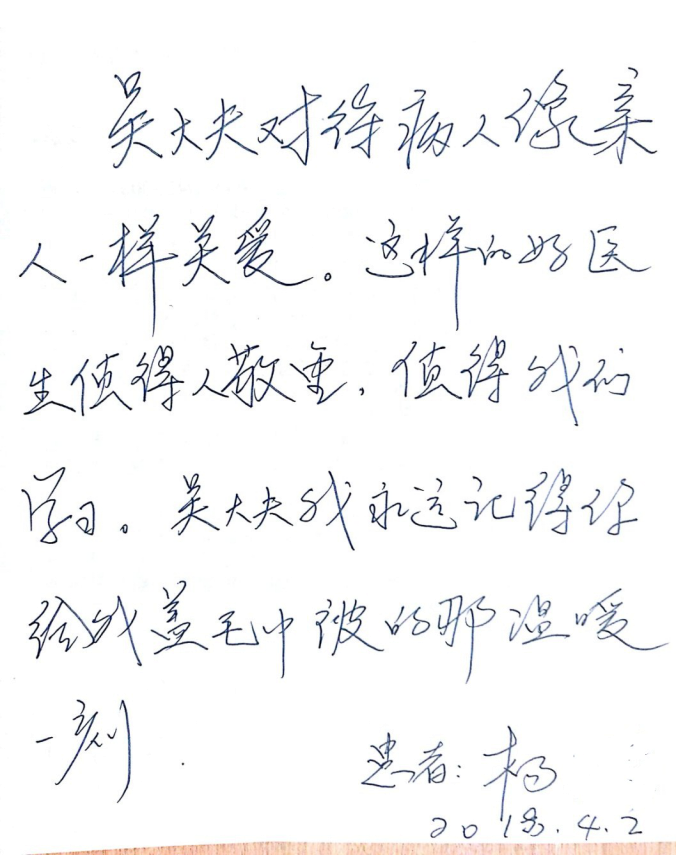 吴大夫对待病人像亲
人一样关爱。这样的好医
生值得人敬重，值得我们
学习。吴大夫我永远记得你
给我盖毛巾被的那温暖
一刻
患者：杨
2018.4.2